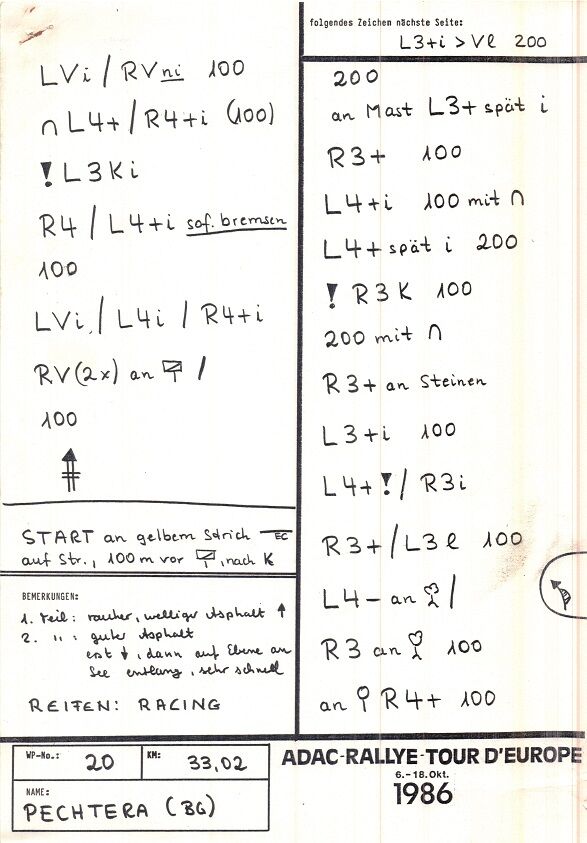 LVi / RVni 100
∩ L4+ / R4+i (100)
! L3Ki
R4 / L4+i sof. bremsen
100
LVi / L4i / R4+i
RV (2x) an /
100
START an gelbem Strich EC
auf Str., 100 m vor , nach K
BEMERKUNGEN:
1. Teil: rauher, welliger Asphalt ↑
2. ": guter Asphalt
erst ↓, dann auf Ebene an
See entlang, sehr schnell
REIFEN: RACING
folgendes Zeichen nächste Seite:
L3+i > Vl 200
200
an Mast L3+ spät i
R3+ 100
L4+i 100 mit ∩
L4+ spät i 200
! R3K 100
200 mit ∩
R3+ an Steinen
L3+i 100
L4+ ! / R3i
R3+ / L3l 100
L4- an /
R3 an 100
an R4+ 100
WP-No.: 20 KM: 33,02
NAME:
PECHTERA (BG)
ADAC-RALLYE-TOUR D'EUROPE
6.-18.Okt.
1986